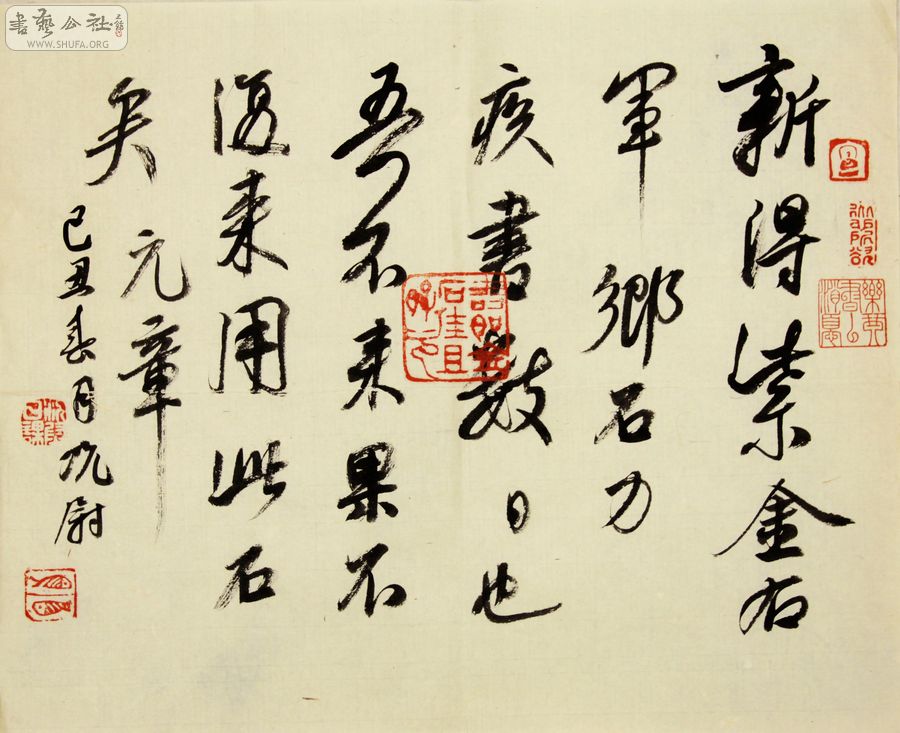 書藝公社
WWW.SHUFA.ORG
新得紫金右
軍鄉石力
疾書數日也
吾不来果不
復来用此石
矣元章
己丑春月尉